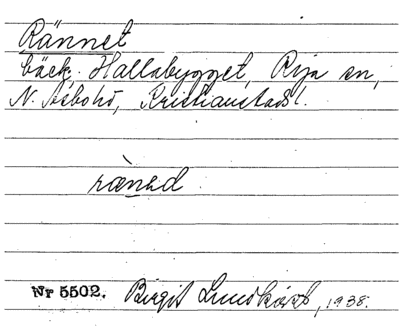 Rännet
bäck. Hallabygget, Rija sn,
N. Åsbohd, Kristianstads l.
ræned
Nr 5502. Birgit 1938.